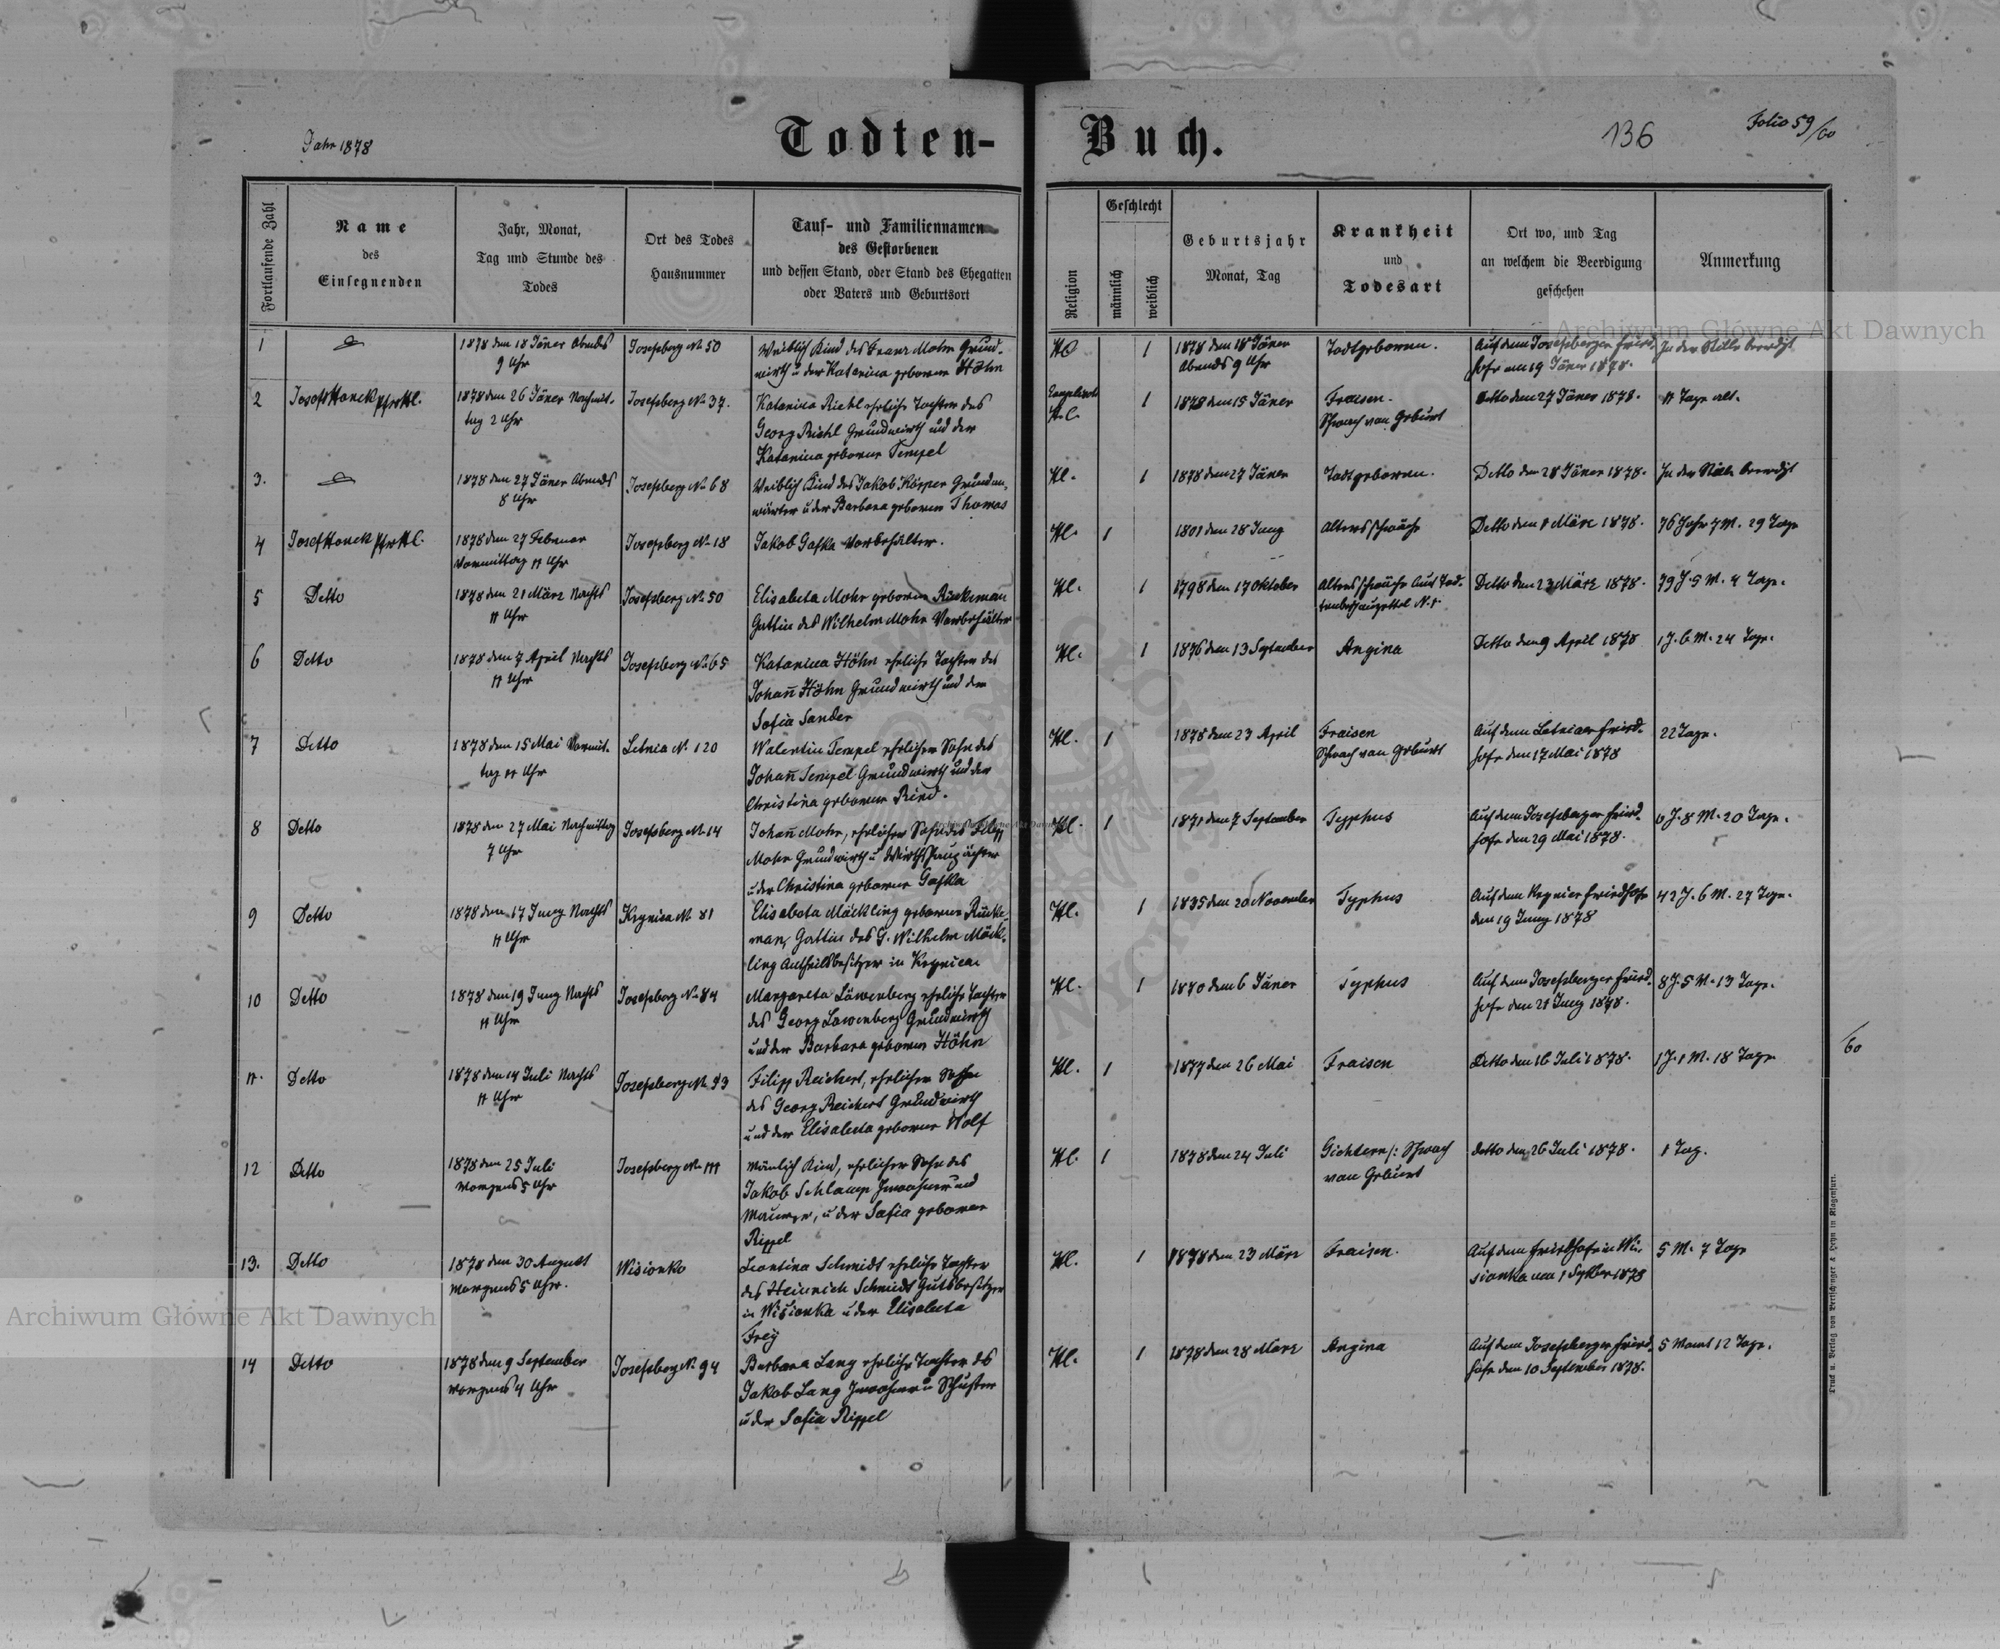 Jahr 1878
Todten-Buch.
136
Folio 59/60
Fortlaufende Zahl
Name
des
Einsegnenden
Jahr, Monat,
Tag und Stunde des
Todes
Ort des Todes
Hausnummer
Tauf- und Familiennamen
des Gestorbenen
und dessen Stand, oder Stand des Ehegatten
oder Vaters und Geburtsort
Religion
Geschlecht
männlich
weiblich
Geburtsjahr
Monat, Tag
Krankheit
und
Todesart
Ort wo, und Tag
an welchem die Beerdigung
geschehen
Anmerkung
1
1878 den 18 Jäner Abends
9 Uhr
Josefsberg No 50
Weiblich Kind des Franz Mohr Grund-
wirth u der Katarina geborene Höhn
1
1878 den 18 Jäner
Abends 9 Uhr
Todtgeboren.
Auf dem Josefsberger Fried
hofe am 19 Jäner 1878.
In der Stille beerdigt
2
Josef Honek
1878 den 26 Jäner Nachmit.
tag 2 Uhr
Josefsberg No 37.
Katarina Riehl ehrliche Tochter des
Georg Riehl Grundwirth und der
Katarina geborene Tempel
H.C.
1
1878 den 15 Jäner
Fraisen.
Schwach von Geburt
Detto den 27 Jäner 1878.
11 Tage alt.
3.
1878 den 27 Jäner Abends
8 Uhr
Josefsberg No 68
Weiblich Kind des Jakob Körper Grundan-
wärter u der Barbara geborene Thomas
Hl.
1
1878 den 27 Jäner
Todtgeboren.
Detto den 28 Jäner 1878.
In der Stille beerdigt
4
Josef Honek
1878 den 27 Februar
Vormittag 11 Uhr
Josefsberg No 18
Jakob Gafka Vorbehälter.
Hl.
1
1801 den 28 Juny
Altersschwäche
Detto den 1 März 1878.
76 Jahr 7 M. 29 Tage
5
Detto
1878 den 21 März Nachts
11 Uhr
Josefsberg No 50
Elisabeta Mohr geborene Rückeman
Gattin des Wilhelm Mohr Vorbehälter
Hl.
1
1798 den 17 Oktober
Altersschwäche Aus Tod-
tenbeschauzettel N. 1.
Detto den 23 März 1878.
79 J. 5 M. 4 Tage.
6
Detto
1878 den 7 April Nachts
11 Uhr
Josefsberg No 65
Katarina Höhn ehrliche Tochter des
Johann Höhn Grundwirth und der
Sofia Sander
Hl.
1
1876 den 13 September
Angina
Detto den 9 April 1878
1 J. 6 M. 24 Tage.
7
Detto
1878 den 15 Mai Vormit.
tag 11 Uhr
Letnia No 120
Walentin Tempel ehrlicher Sohn des
Johann Tempel Grundwirth und der
Christina geborene Rind.
Hl.
1
1878 den 23 April
Fraisen
Schwach von Geburt
Auf dem Letniaer Fried-
hofe den 17 Mai 1878
22 Tage.
8
Detto
1878 den 27 Mai Nachmittag
7 Uhr
Josefsberg No 14
Johann Mohr, ehrlicher Sohn des Filipp
Mohr Grundwirth u Wirthshauspächter
u der Christina geborene Gafka
Hl.
1
1871 den 7 September
Typhus
Auf dem Josefsberger Fried-
hofe den 29 Mai 1878.
6 J. 8 M. 20 Tage.
9
Detto
1878 den 17 Juny Nachts
11 Uhr
Krynica No 81
Elisabeta Mäckling geborene Rücke-
man, Gattin des G. Wilhelm Mäck-
ling Antheilsbesitzer in Krynica
Hl.
1
1835 den 20 November
Typhus
Auf dem Krynicer Friedhofe
den 19 Juny 1878
42 J. 6 M. 27 Tage.
10
Detto
1878 den 19 Juny Nachts
11 Uhr
Josefsberg No 84
Margareta Löwenberg ehrliche Tochter
des Georg Lowenberg Grundwirth
und der Barbara geborene Höhn
Hl.
1
1870 den 6 Jäner
Typhus
Auf dem Josefsberger Fried-
hofe den 21 Juny 1878.
8 J. 5 M. 13 Tage.
60
11.
Detto
1878 den 14 Juli Nachts
11 Uhr
Josefsberg No
Filipp Reichert, ehrlicher Sohn
des Georg Reichert Grundwirth
und der Elisabeta geborene Wolf
Hl.
1
1877 den 26 Mai
Fraisen
Detto den 16 Juli 1878.
1 J. 1 M. 18 Tage
12
Detto
1878 den 25 Juli
Morgens 5 Uhr
Josefsberg No 111
Mänlich Kind, ehrlicher Sohn des
Jakob Schlamp Inwohner und
Maurer, u der Sofia geborene
Rippel
Hl.
1
1878 den 24 Juli
Gichtern /: Schwach
von Geburt
Detto den 26 Juli 1878.
1 Tag.
13.
Detto
1878 den 30 August
Morgens 5 Uhr.
Wisionko
Leontina Schmidt ehrliche Tochter
des Heinrich Schmidt Gutsbesitzer
in Wisionka u der Elisabeta
Frey
Hl.
1
1878 den 23 März
Fraisen.
Auf dem Friedhofe in Wi-
sionka am 1 Septber 1878
5 M. 7 Tage
14
Detto
1878 den 9 September
Morgens 4 Uhr
Josefsberg No 94
Barbara Lang ehrliche Tochter des
Jakob Lang Inwohner u Schuster
u der Sofia Rippel
Hl.
1
1878 den 28 März
Angina
Auf dem Josefsberger Fried-
hofe den 10 September 1878.
5 Monat 12 Tage.
Druck u. Verlag von Bertschinger & Heyn in Klagenfurt.
Archiwum Główne Akt Dawnych
Archiwum Główne Akt Dawnych